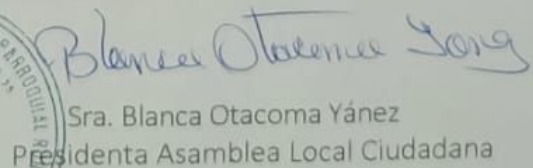 Blanca Otacoma Yang
PARROQUIAL R
Sra. Blanca Otacoma Yánez
Presidenta Asamblea Local Ciudadana